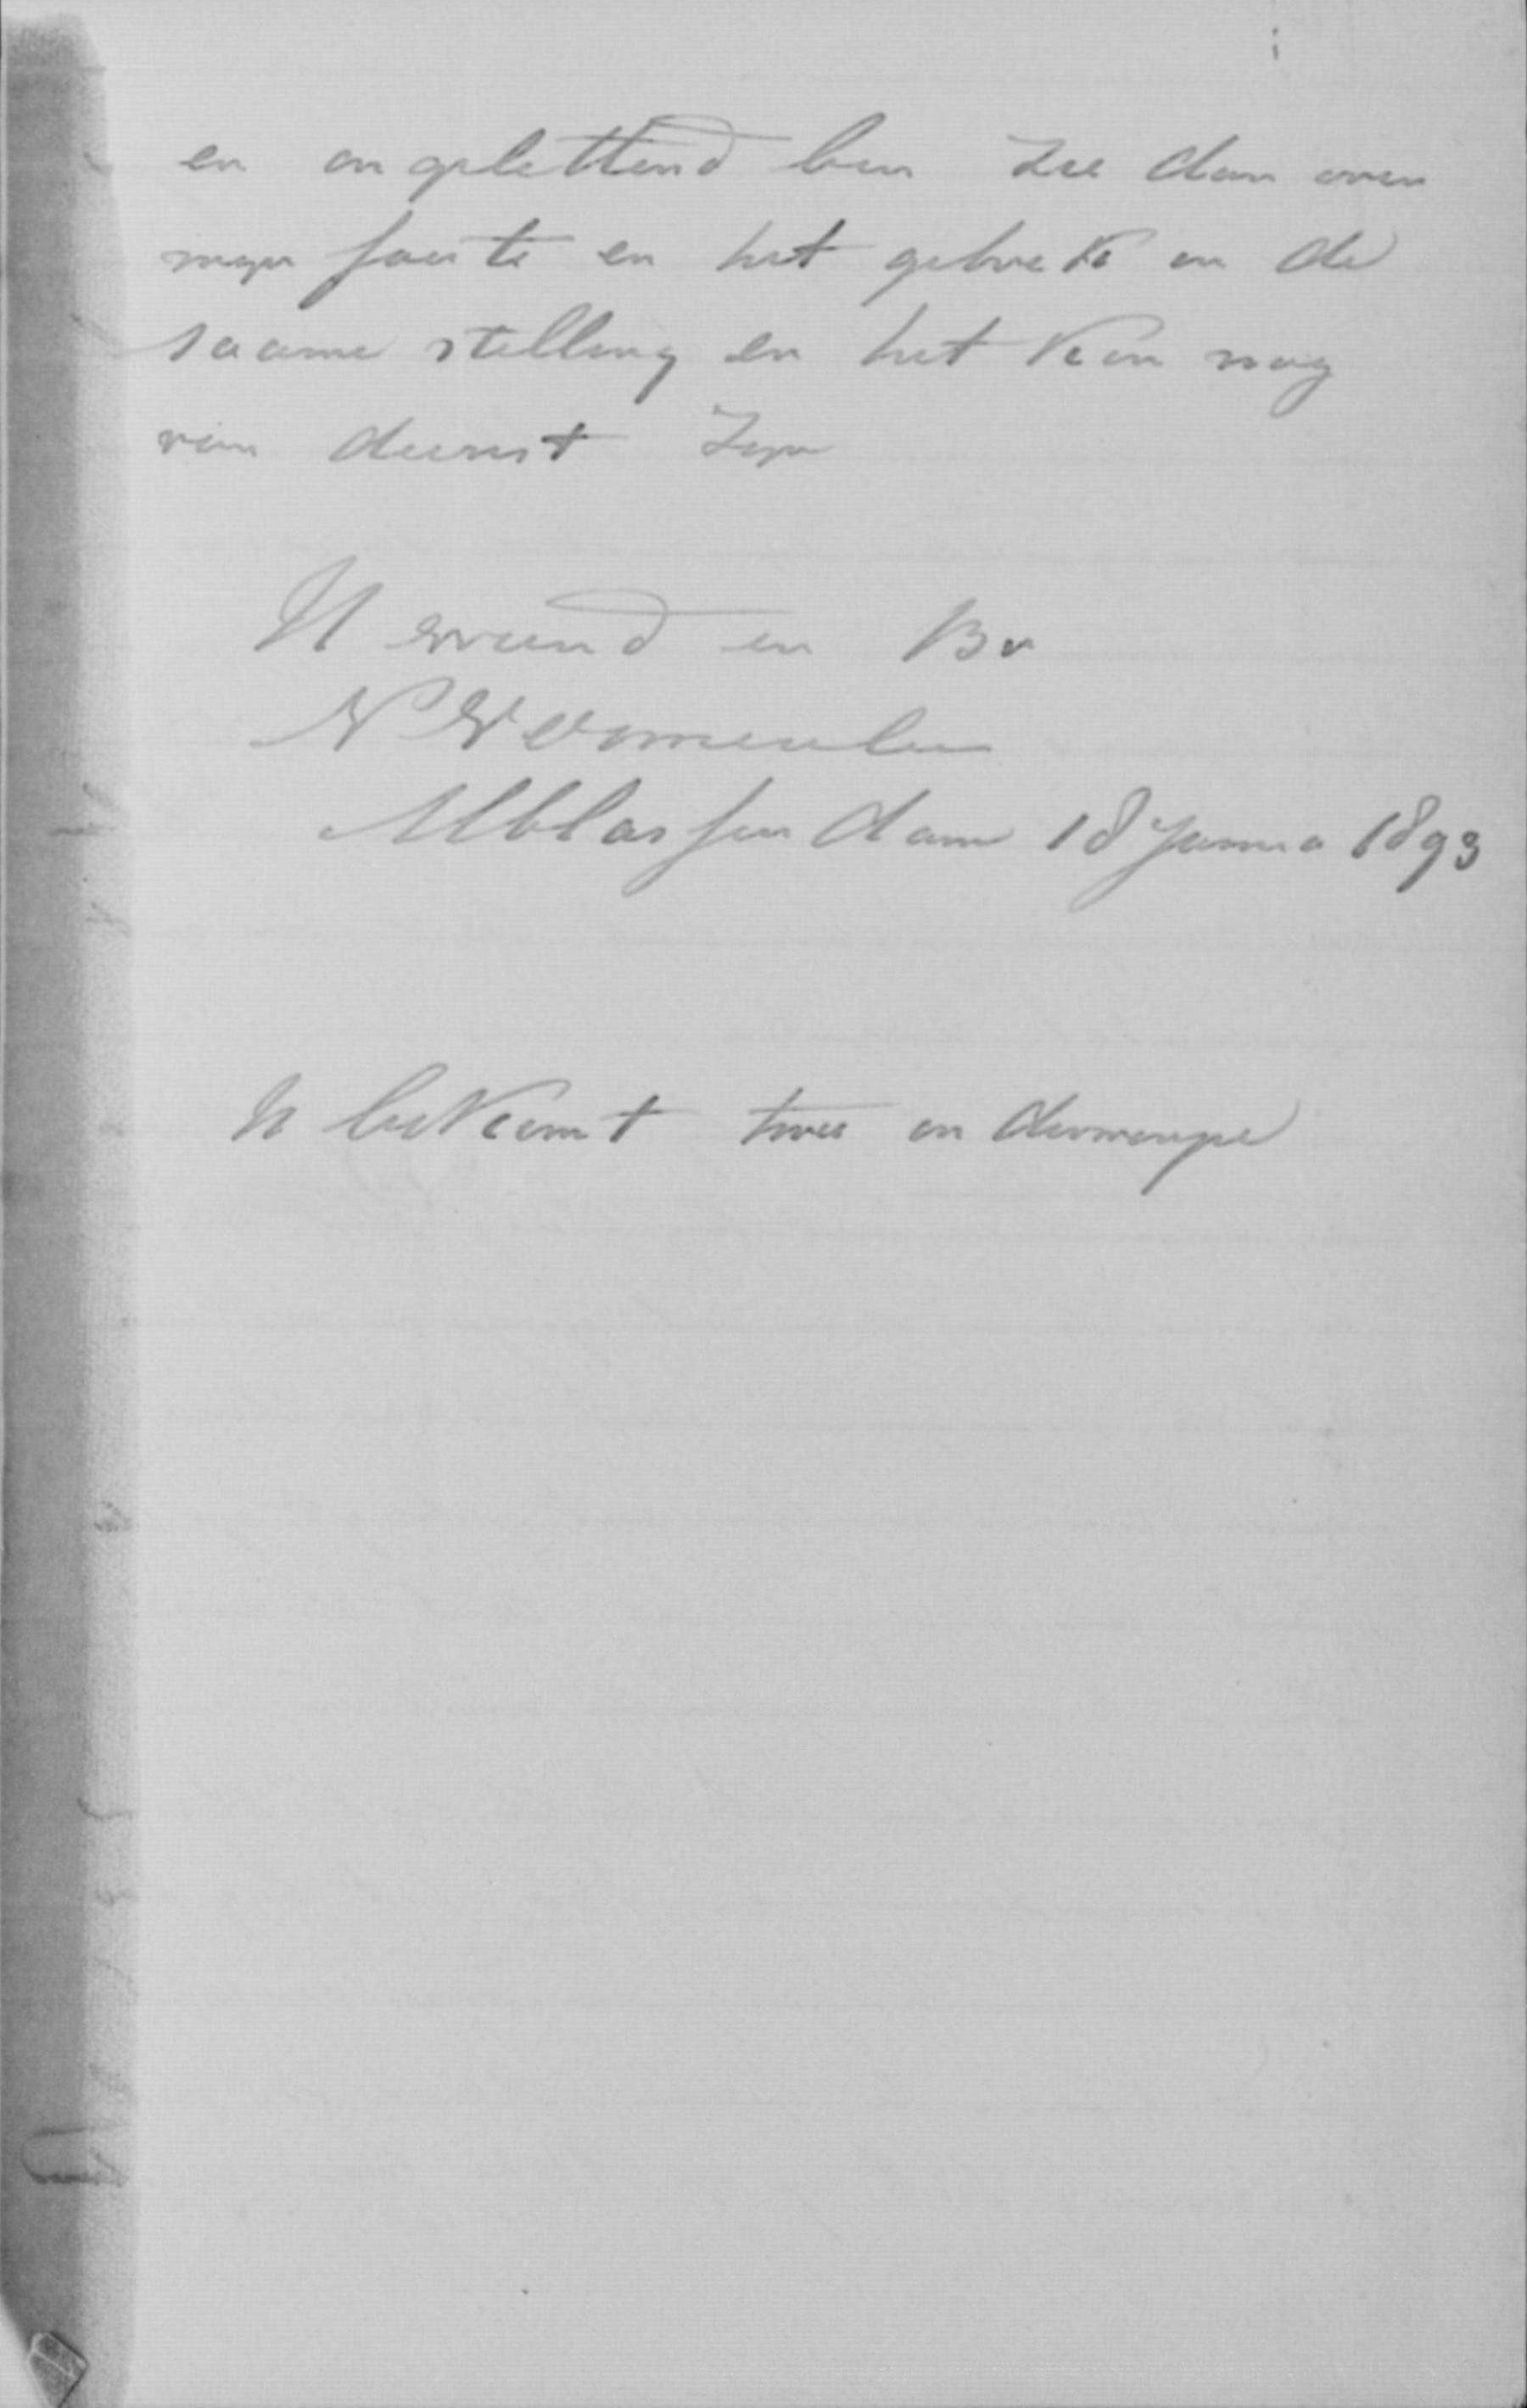 en on oplettend ben Zee dan over
myn foute en het gebrek en de
saame stelling en het kan nog
van dienst Zyn
U vriend en Br
N Vermeulen
Alblasserdam 18 Janua 1893
U bekomt twee